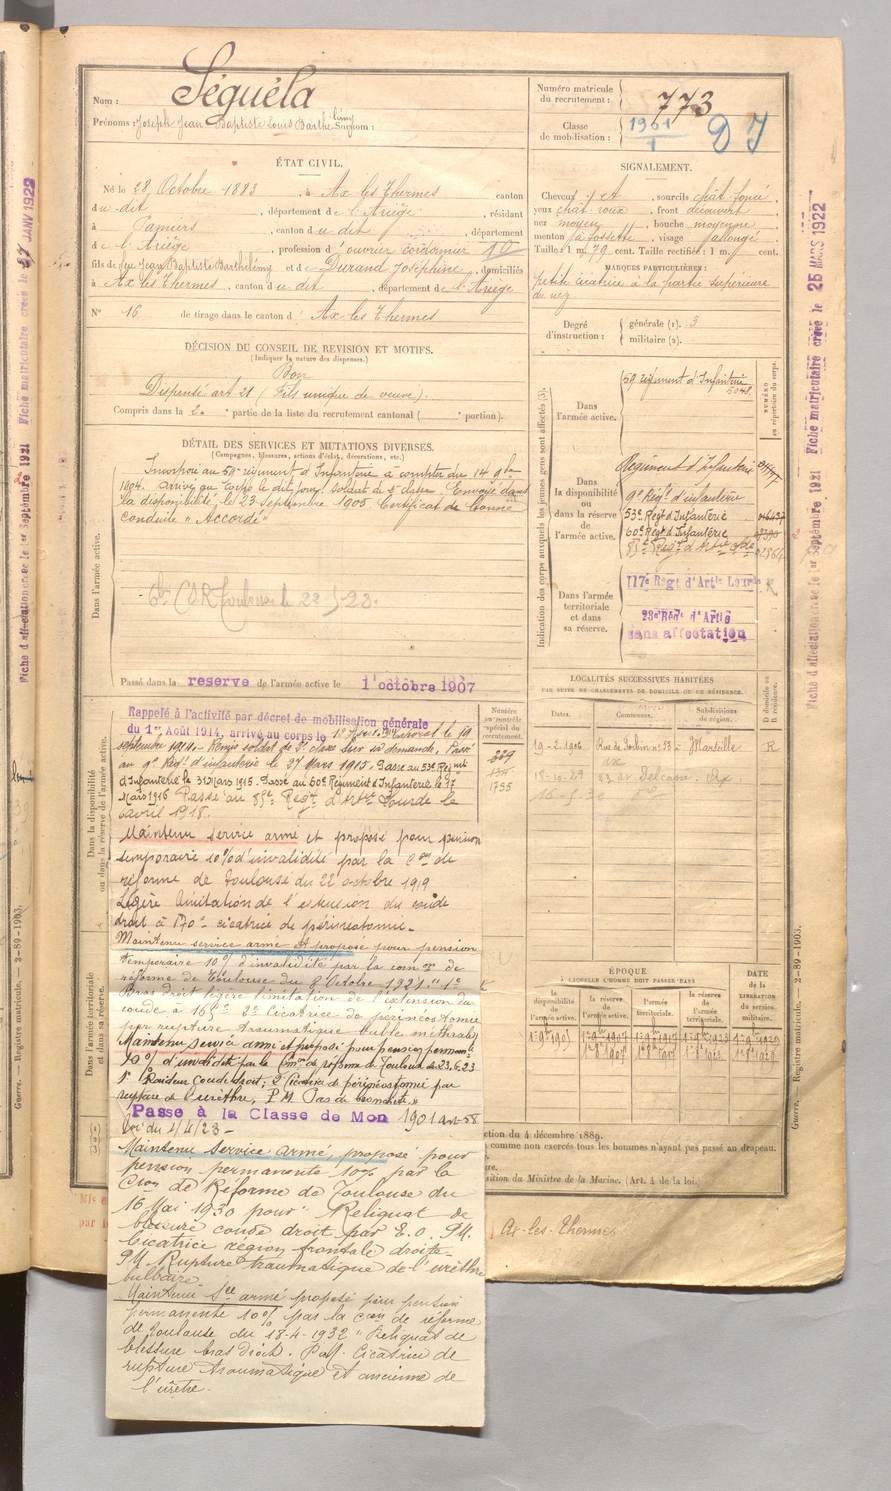 Nom : Séguéla
Prénoms : Joseph Jean Baptiste Louis Barthélémy Surnom :
Numéro matricule du recrutement : 773
Classe de mobilisation : 1901
ÉTAT CIVIL.
Né le 28 Octobre 1883, à Ax les Thermes canton
du dit, département de l'Ariège, résidant
à Pamiers, canton du dit, département
de l'Ariège, profession d'ouvrier cordonnier
fils de feu Jean Baptiste Barthélémy et de Durand Joséphine, domiciliés
à Ax les Thermes, canton du dit, département de l'Ariège
N° 16 de tirage dans le canton d'Ax les Thermes
SIGNALEMENT.
Cheveux et sourcils chât. foncé,
yeux chât. roux, front découvert
nez moyen, bouche moyenne
menton à fossette, visage allongé
Taille : 1 m. 79 cent. Taille rectifiée : 1 m. cent.
MARQUES PARTICULIÈRES :
petite cicatrice à la partie supérieure
du nez
Degré d'instruction : générale (1). 3
militaire (2).
DÉCISION DU CONSEIL DE REVISION ET MOTIFS.
(Indiquer la nature des dispenses.)
Bon
Dispensé art 21 (Fils unique de veuve).
Compris dans la 2e partie de la liste du recrutement cantonal ( portion).
DÉTAIL DES SERVICES ET MUTATIONS DIVERSES.
(Campagnes, blessures, actions d'éclat, décorations, etc.)
Dans l'armée active.
Incorporé au 59e régiment d'Infanterie à compter du 14 9bre
1904. arrivé au corps le dit jour, soldat de 2e classe. Envoyé dans
la disponibilité le 23 septembre 1905 Certificat de bonne
conduite "Accordé"
Passé dans la reserve de l'armée active le 1er octobre 1907
Indication des corps auxquels les jeunes gens sont affectés (3).
NUMÉRO au répertoire du corps.
Dans l'armée active.
59 régiment d'Infanterie
5048
Dans la disponibilité ou dans la réserve de l'armée active.
Régiment d'Infanterie
9e Régt d'infanterie
53e Régt d'Infanterie
60e Régt d'Infanterie
Dans l'armée territoriale et dans sa réserve.
117e Régt d'Artie Lourde
23e Régt d'Artie
sans affectation
LOCALITÉS SUCCESSIVES HABITÉES
PAR SUITE DE CHANGEMENTS DE DOMICILE OU DE RÉSIDENCE.
Dates. Communes. Subdivisions de région. D domicile ou R résidence.
19-2-1906 Marseille R
18-10-29 Ax
Numéro au contrôle spécial du recrutement.
1755
Dans la disponibilité ou dans la réserve de l'armée active.
Rappelé à l'activité par décret de mobilisation générale
du 1er Août 1914, arrivé au corps le
septembre 1914. Remis soldat de 2e classe sur sa demande. Passé
au 9e Régt d'infanterie le 27 Mars 1915. Passé au 53e Régiment
d'Infanterie le 31 Mars 1915. Passé au 60e Régiment d'Infanterie le 17
Mars 1916 Passé au Régt d'Artie Lourde le
avril 1918.
Maintenu service armé et proposé pour pension
temporaire 10% d'invalidité par la Con de
réforme de Toulouse du 22 octobre 1919
Légère limitation de l'extension du coude
droit à 170° cicatrice de périnéotomie.
Maintenu service armé et proposé pour pension
temporaire 10% d'invalidité par la comon de
réforme de Toulouse du 8 Octobre 1921. "1°
Bras droit légère limitation de l'extension du
coude à 165° 2° Cicatrice de périnéotomie
par rupture traumatique
Maintenu service armé et proposé pour pension perman
10% d'invalidité par la Comon de réforme de Toulouse du 23.6.23
1° Raideur coude droit, 2° Cicatrice de périnéostomie par
rupture de l'urèthre,
Passé à la Classe de Mon 1901 art 58
loi du 1/4/23 -
Maintenu service armé, proposé pour
pension permanente 10% par la
Cion de Réforme de Toulouse du
16 Mai 1930 pour Reliquat de
blessure coude droit par E.O. P.M.
Cicatrice région frontale droite
P.M. Rupture traumatique de l'urèthre
bulbaire.
Maintenu Sce armé proposé pour pension
permanente 10% par la Con de réforme
de Toulouse du 18-4-1932 "Reliquat de
blessure bras droit. Cicatrice de
rupture traumatique et ancienne de
l'urètre.
Dans l'armée territoriale et dans sa réserve.
ÉPOQUE
À LAQUELLE L'HOMME DOIT PASSER DANS
la disponibilité de l'armée active. la réserve de l'armée active. l'armée territoriale. la réserve de l'armée territoriale. DATE de la LIBÉRATION du service militaire.
ction du 4 décembre 1889.
comme non exercés tous les hommes n'ayant pas passé au drapeau.
sition du Ministre de la Marine. (Art. 4 de la loi.)
Ax-les-Thermes
Guerre. — Registre matricule. — 2-89-1903.
Fiche matriculaire créée le 25 MARS 1922
JANV 1922
Guerre. — Registre matricule. — 3-89-1903.